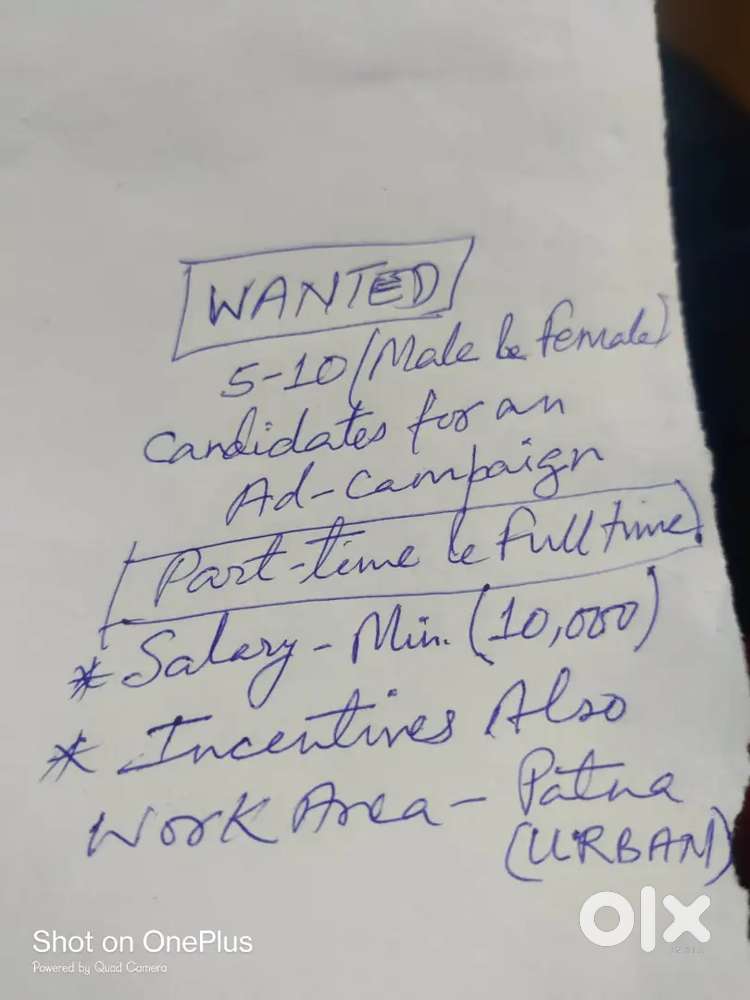 WANTED
5-10 (Male & female)
Candidates for an
Ad-Campaign
Part-time & Full time.
* Salary - Min. (10,000)
* Incentives Also
Work Area - Patna
(URBAN)
olx
Shot on OnePlus
Powered by Quad Camera